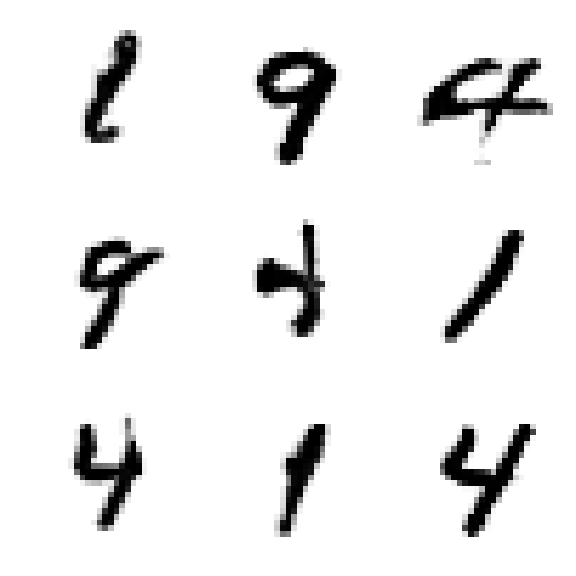 9 4
9 4 1
4 1 4